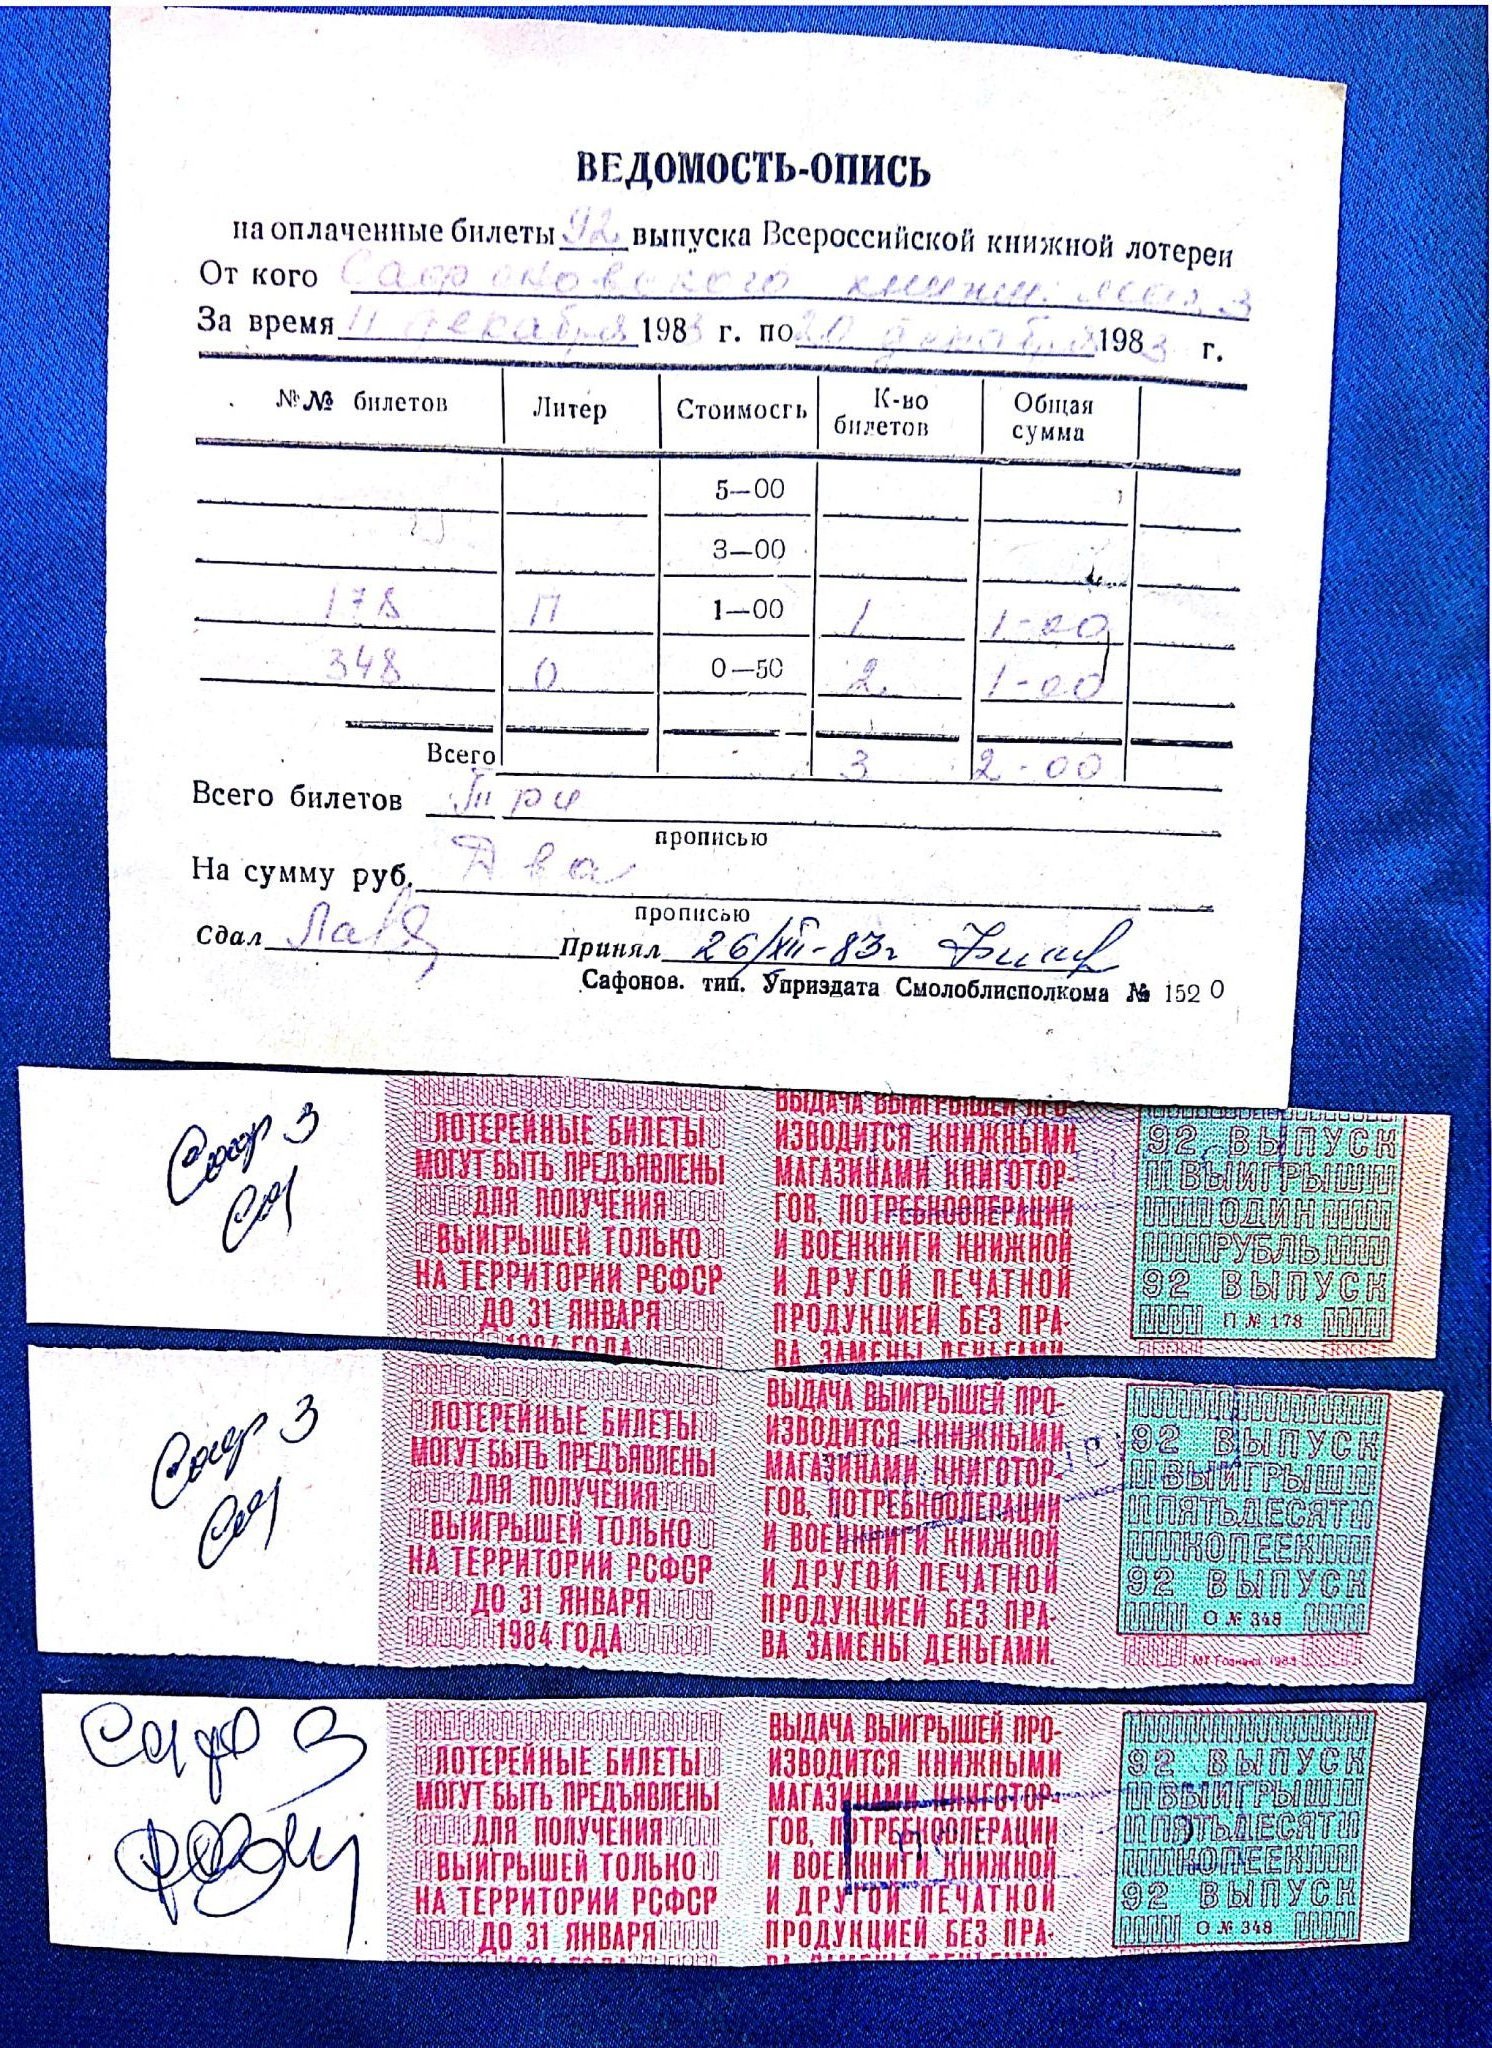 ВЕДОМОСТЬ-ОПИСЬ
на оплаченные билеты 92 выпуска Всероссийской книжной лотереи
От кого Сафоновского книжн. маг. 3
За время 11 декабря 1983 г. по 20 декабря 1983 г.
№№ билетов Литер Стоимость К-во билетов Общая сумма
5—00
3—00
178 П 1—00 1 1-00
348 О 0—50 2 1-00
Всего 3 2-00
Всего билетов Три
прописью
На сумму руб. Два
прописью
Сдал Принял 26/XII-83г
Сафонов. тип. Уприздата Смолоблисполкома № 1520
Саф 3
ЛОТЕРЕЙНЫЕ БИЛЕТЫ
МОГУТ БЫТЬ ПРЕДЪЯВЛЕНЫ
ДЛЯ ПОЛУЧЕНИЯ
ВЫИГРЫШЕЙ ТОЛЬКО
НА ТЕРРИТОРИИ РСФСР
ДО 31 ЯНВАРЯ
1984 ГОДА
ВЫДАЧА ВЫИГРЫШЕЙ ПРО-
ИЗВОДИТСЯ КНИЖНЫМИ
МАГАЗИНАМИ КНИГОТОР-
ГОВ, ПОТРЕБКООПЕРАЦИИ
И ВОЕНКНИГИ КНИЖНОЙ
И ДРУГОЙ ПЕЧАТНОЙ
ПРОДУКЦИЕЙ БЕЗ ПРА-
ВА ЗАМЕНЫ ДЕНЬГАМИ.
92 ВЫПУСК
ВЫИГРЫШ
ОДИН
РУБЛЬ
92 ВЫПУСК
П № 178
Саф 3
ЛОТЕРЕЙНЫЕ БИЛЕТЫ
МОГУТ БЫТЬ ПРЕДЪЯВЛЕНЫ
ДЛЯ ПОЛУЧЕНИЯ
ВЫИГРЫШЕЙ ТОЛЬКО
НА ТЕРРИТОРИИ РСФСР
ДО 31 ЯНВАРЯ
1984 ГОДА
ВЫДАЧА ВЫИГРЫШЕЙ ПРО-
ИЗВОДИТСЯ КНИЖНЫМИ
МАГАЗИНАМИ КНИГОТОР-
ГОВ, ПОТРЕБКООПЕРАЦИИ
И ВОЕНКНИГИ КНИЖНОЙ
И ДРУГОЙ ПЕЧАТНОЙ
ПРОДУКЦИЕЙ БЕЗ ПРА-
ВА ЗАМЕНЫ ДЕНЬГАМИ.
92 ВЫПУСК
ВЫИГРЫШ
ПЯТЬДЕСЯТ
КОПЕЕК
92 ВЫПУСК
О № 348
МТ Гознака. 1983.
Саф 3
ЛОТЕРЕЙНЫЕ БИЛЕТЫ
МОГУТ БЫТЬ ПРЕДЪЯВЛЕНЫ
ДЛЯ ПОЛУЧЕНИЯ
ВЫИГРЫШЕЙ ТОЛЬКО
НА ТЕРРИТОРИИ РСФСР
ДО 31 ЯНВАРЯ
1984 ГОДА
ВЫДАЧА ВЫИГРЫШЕЙ ПРО-
ИЗВОДИТСЯ КНИЖНЫМИ
МАГАЗИНАМИ КНИГОТОР-
ГОВ, ПОТРЕБКООПЕРАЦИИ
И ВОЕНКНИГИ КНИЖНОЙ
И ДРУГОЙ ПЕЧАТНОЙ
ПРОДУКЦИЕЙ БЕЗ ПРА-
ВА ЗАМЕНЫ ДЕНЬГАМИ
92 ВЫПУСК
ВЫИГРЫШ
ПЯТЬДЕСЯТ
КОПЕЕК
92 ВЫПУСК
О № 348